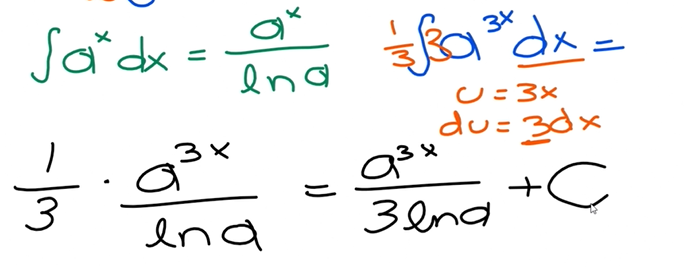 ∫aˣ dx = aˣ/ln a
1/3 ∫3a³ˣ dx =
u = 3x
du = 3dx
1/3 · a³ˣ/ln a = a³ˣ/3 ln a + C